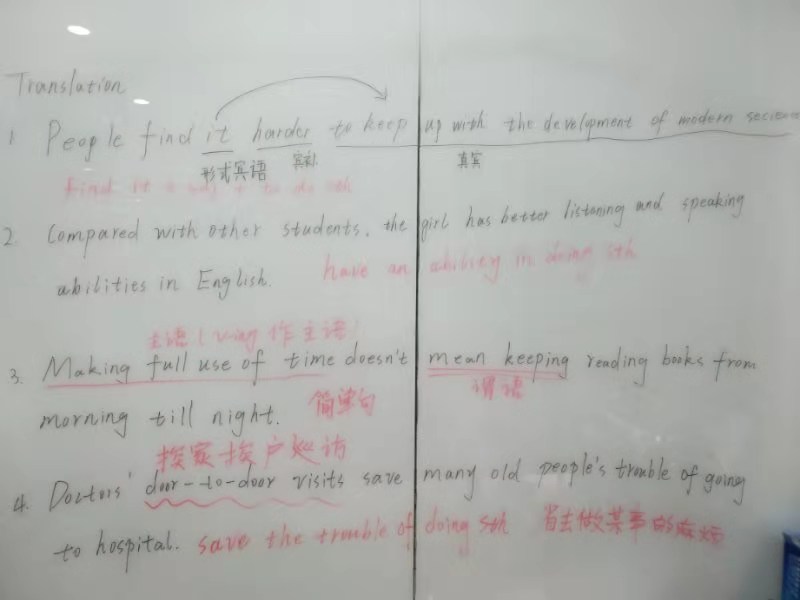 Translation
1 People find it harder to keep up with the development of modern secience
形式宾语 宾补 真宾
find it + adj + to do sth
2. Compared with other students, the girl has better listening and speaking
abilities in English. have an ability in doing sth
主语 (Ving 作主语)
3. Making full use of time doesn't mean keeping reading books from
谓语
morning till night. 简单句
挨家挨户 访
4. Doctors' door-to-door visits save many old people's trouble of going
to hospital. save the trouble of doing sth 省去做某事的麻烦